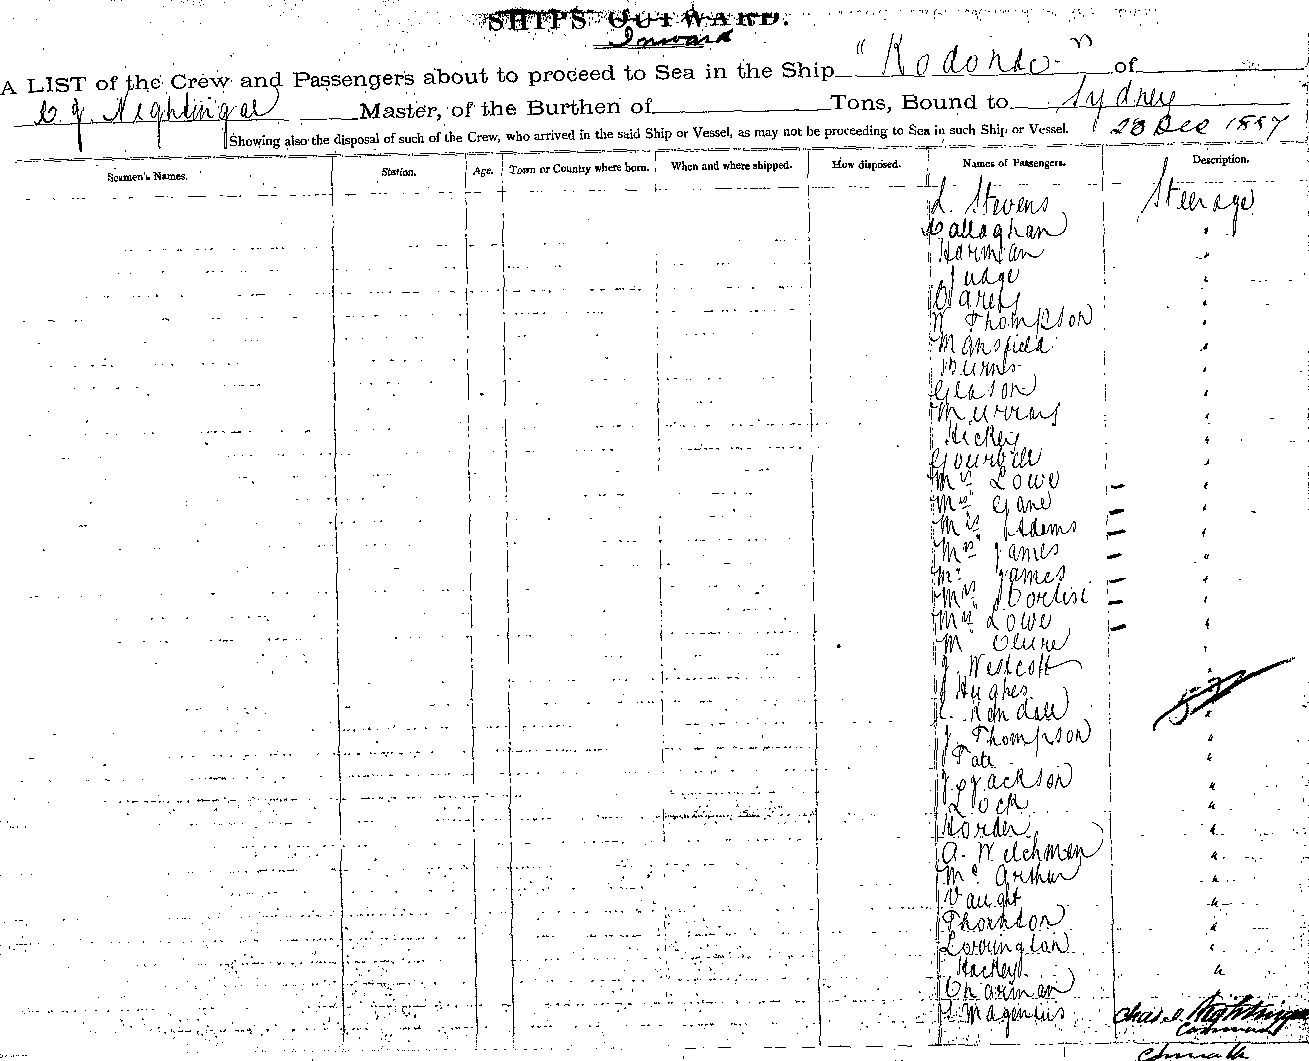 SHIPS OUTWARD.
Inward
A LIST of the Crew and Passengers about to proceed to Sea in the Ship "Rodondo" of
C. J. Nightingale Master, of the Burthen of Tons, Bound to Sydney
Showing also the disposal of such of the Crew, who arrived in the said Ship or Vessel, as may not be proceeding to Sea in such Ship or Vessel. 28 Dec 1887
Seamen's Names. Station. Age. Town or Country where born. When and where shipped. How disposed. Names of Passengers. Description.
L. Stevens Steerage
Callaghan "
Harman "
Judge "
Carey "
W Thompson "
Mansfield "
Burns "
Gleason "
Murray "
Hickey "
"
Mrs Lowe "
Mrs Gane "
Mrs Adams "
Mrs James "
Mr James "
Mrs "
Mrs Lowe "
M "
J. Westcott "
J Hughes
Randall "
J. Thompson "
Tate "
Jackson "
Lock "
Horder "
A. Welchman "
McArthur "
Vaught "
Thornton "
Lovington "
Hackey "
Charman
Magenlis Chas. J. Nightingale